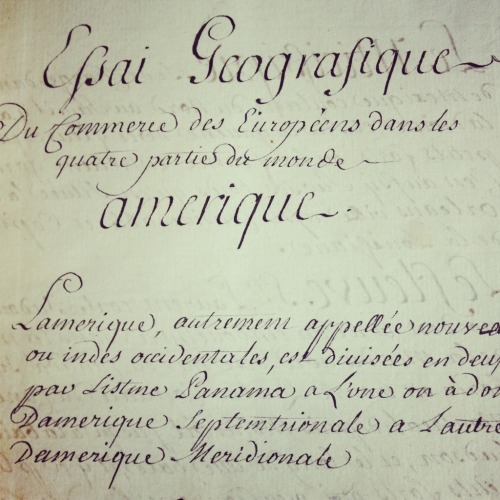 Essai Geografique
Du Commerce des Européens dans les
quatre partie du monde
amerique.
Lamerique, autrement appellée nouve
ou indes occidentales, est divisées en deux
par Listme Panama a Lune on à don
Damerique Septemtrionale a Lautre
Damerique Meridionale